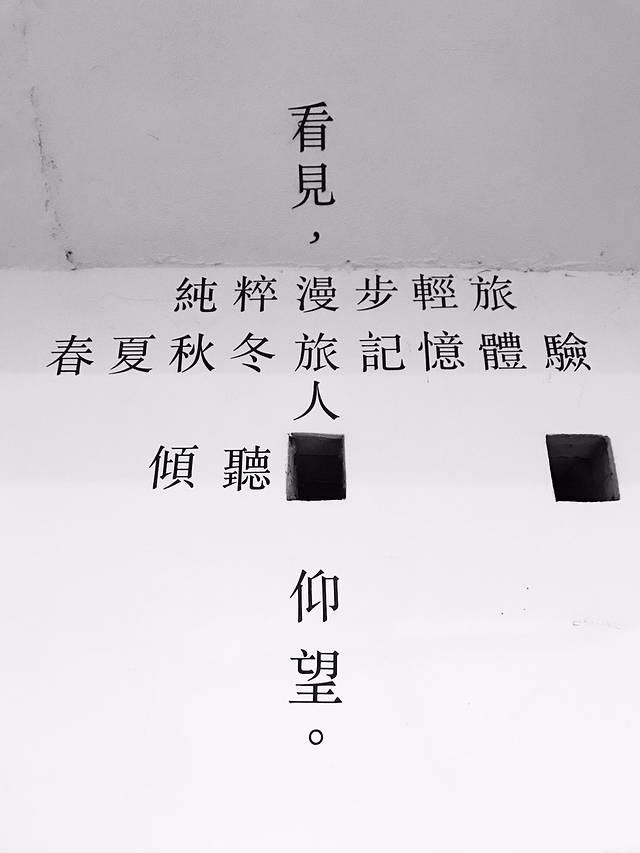 看見，
純粹漫步輕旅
春夏秋冬旅記憶體驗
人
傾聽
仰望。